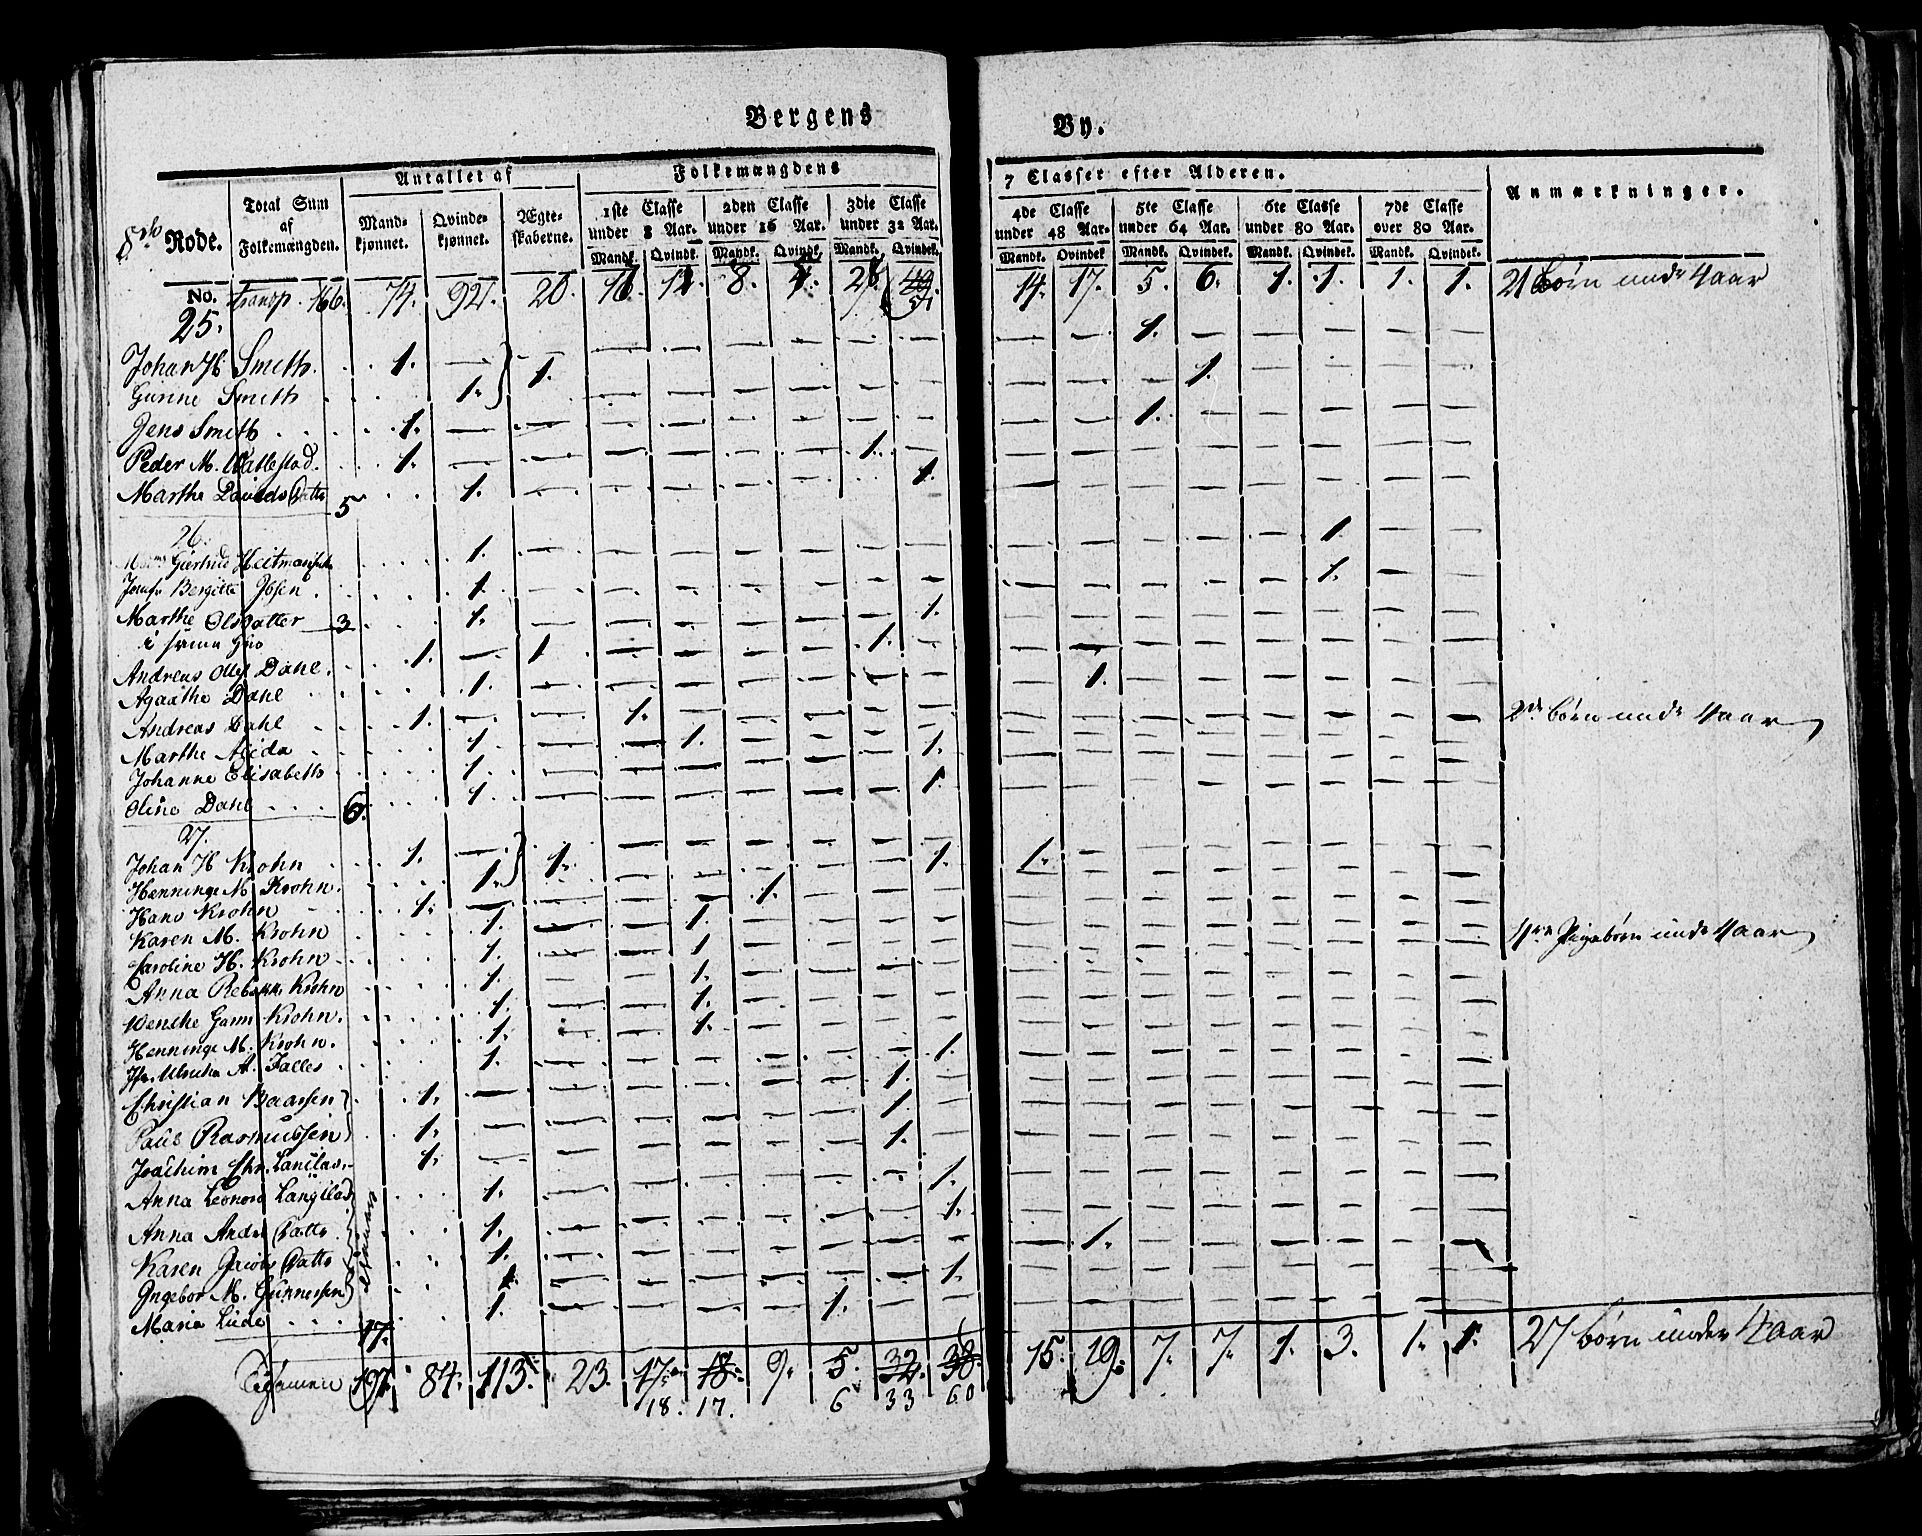 Bergens By.
8de Rode.
Total Sum af Folkemængden.
Antallet af
Mandkjønnet.
Qvindekjønnet.
Ægteskaberne.
Folkemængdens 7 Classer efter Alderen.
1ste Classe under 8 Aar.
2den Classe under 16 Aar.
3die Classe under 32 Aar.
4de Classe under 48 Aar.
5te Classe under 64 Aar.
6te Classe under 80 Aar.
7de Classe over 80 Aar.
Anmærkninger.
Mandk. Qvindek. Mandk. Qvindek. Mandk. Qvindek. Mandk. Qvindek. Mandk. Qvindek. Mandk. Qvindek. Mandk. Qvindek.
No. transp. 166. 74. 92. 20. 14. 17. 5. 6. 1. 1. 1. 1. 21 Børn unde 4 aar
25.
Johan H. Smith . . . 1. — 1. — 1.
Gurine Smith . . . 1. — 1.
Jens Smith . . . . 1. — 1.
Peder M. Vallestad . . 1. — 1.
Marthe Davids Datter 5 . . 1. — 1.
26.
Giertrud Heitman 1. — 1.
Jomfr Bergitte Ibsen . . 1. — 1.
Marthe Olsdatter 3 . . 1. — 1.
i samme Huus
Andreas Dahl. . . 1. — 1 — 1.
Agaathe Dahl . . . 1. — 1.
Andreas Dahl . . 1. — 1. — 2de børn unde 4 aar
Marthe Alida . . . 1. — 1.
Johanne Elisabeth . . . 1. — 1.
Oline Dahl . . . 6. . . 1. — 1.
27.
Johan H Krohn . . . 1. — 1. — 1.
Henninge M. Krohn. . . 1. — 1.
Hans Krohn . . 1. — 1.
Karen M. Krohn . . 1. — 1.
Caroline H. Krohn . . 1. — 1.
Anna Rebekke Krohn . . 1. — 1.
Wenche Garm Krohn. . . 1. — 1.
Henninge M. Krohn. . . 1. — 1.
Jfr. Ulricha A. Falles . . 1. — 1.
Christian Baarsen . . 1. — 1.
Paul Rasmussen . . 1. — 1.
Joachim Chr. 1. — 1.
Anna Leonora . . 1. — 1.
Anna Andr Datter . . 1. — 1.
Karen Jacobs Datter . . 1. — 1.
Ingebor M. Gunnersen . . 1. — 1.
Maria Lude . . . . 17. 1. — 1.
4re Pigebørn unde 4 aar
197. 84. 113. 23. 17. 18. 9. 5. 32. 38. 15. 19. 7. 7. 1. 3. 1. 1. 27 børn under 4 aar
18. 17. 6 33 60